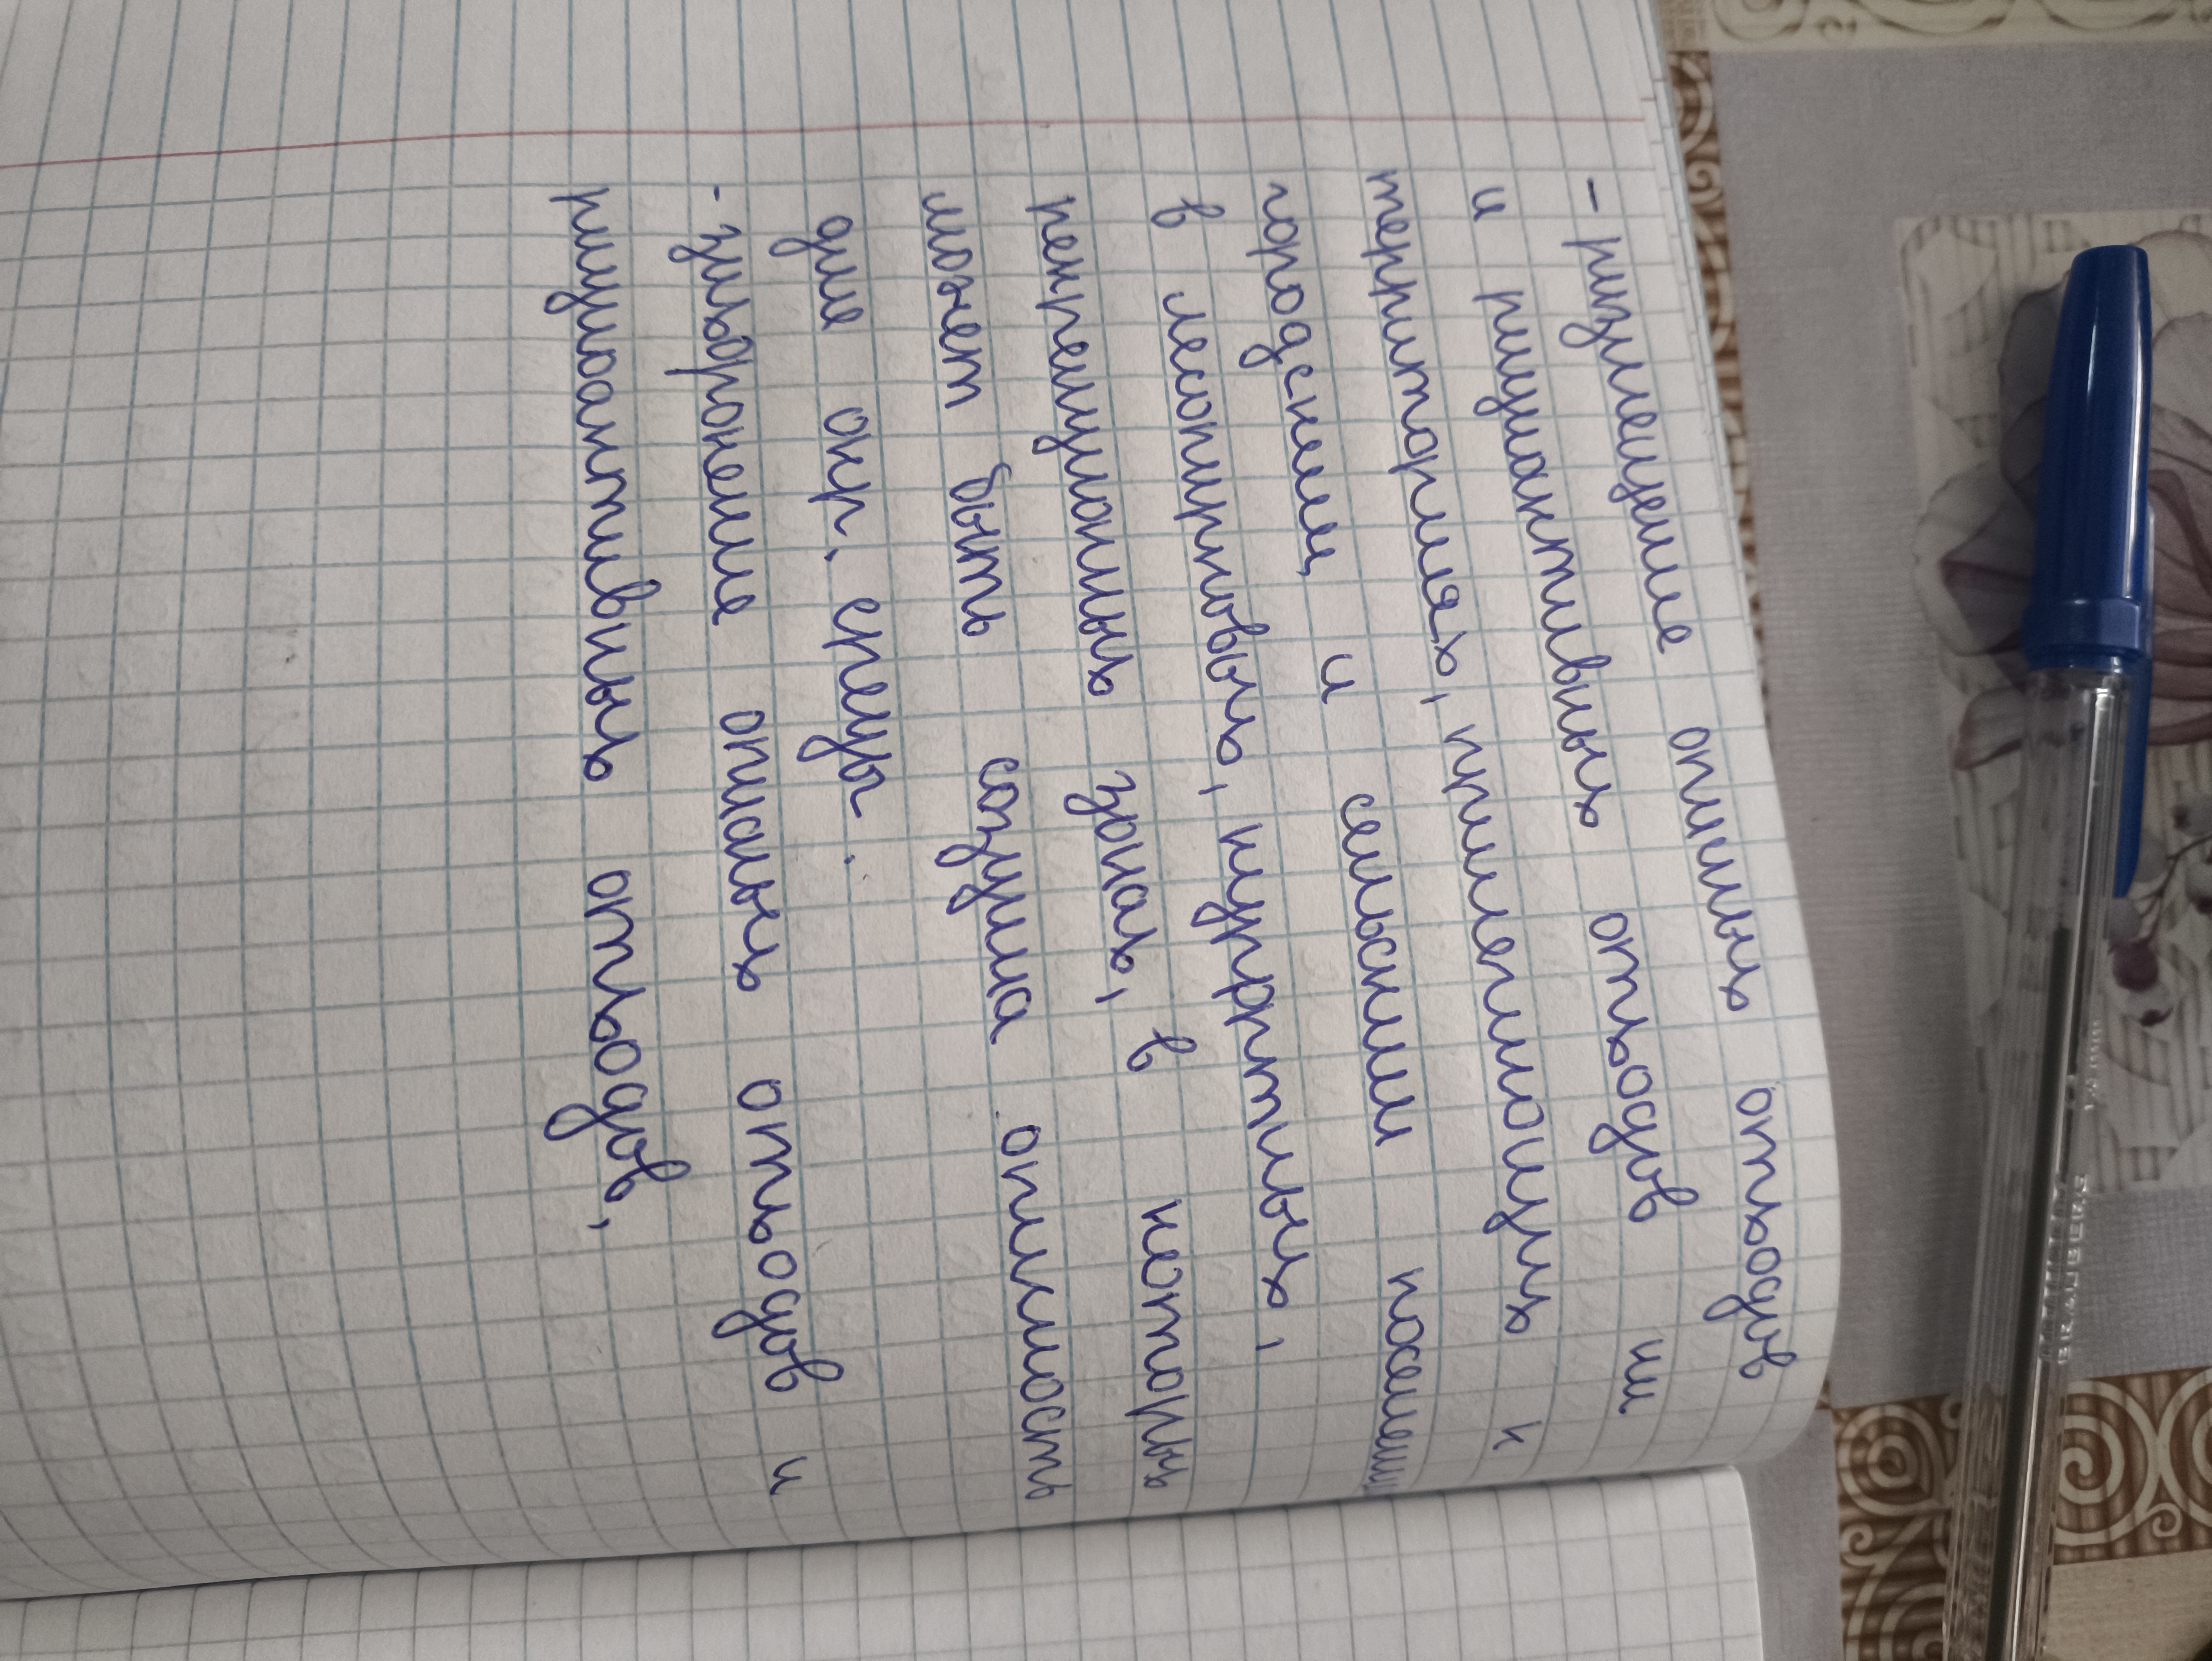 - размещение опасных отходов
и радиактивных отходов на
территориях, прилегающих к
городским и сельским поселени
в лесопарковых, курортных,
рекреационных зонах, в которых
может быть создана опасность
для окр. среды.
- захоронение опасных отходов и
радиоактивных отходов,